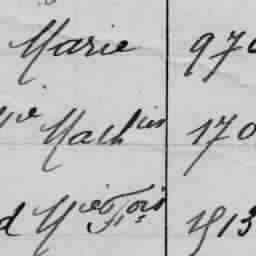 Marie 970
Ve Mathieu 170
d Mie Fois 1913